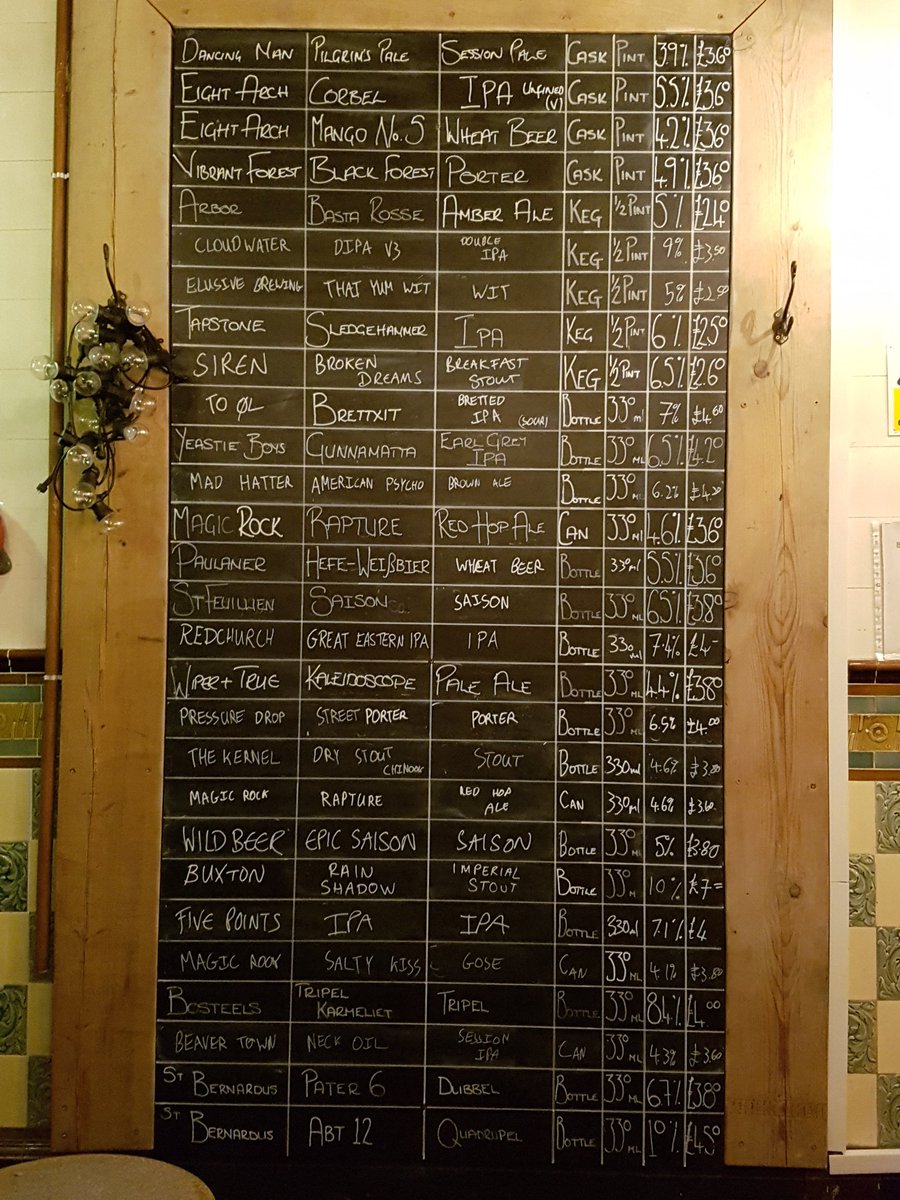 DANCING MAN PILGRIM'S PALE SESSION PALE CASK PINT 3.9% £3.60
EIGHT ARCH CORBEL IPA UNFINED (V) CASK PINT 5.5% £3.60
EIGHT ARCH MANGO No. 5 WHEAT BEER CASK PINT 4.2% £3.60
VIBRANT FOREST BLACK FOREST PORTER CASK PINT 4.9% £3.60
ARBOR BASTA ROSSE AMBER ALE KEG 1/2 PINT 5% £2.40
CLOUDWATER DIPA V3 DOUBLE IPA KEG 1/2 PINT 9% £3.50
ELUSIVE BREWING THAI YUM WIT WIT KEG 1/2 PINT 5% £2.50
TAPSTONE SLEDGEHAMMER IPA KEG 1/2 PINT 6% £2.50
SIREN BROKEN DREAMS BREAKFAST STOUT KEG 1/2 PINT 6.5% £2.60
TO ØL BRETTXIT BRETTED IPA (SOUR) BOTTLE 330ml 7% £4.60
YEASTIE BOYS GUNNAMATTA EARL GREY IPA BOTTLE 330ML 6.5% £4.20
MAD HATTER AMERICAN PSYCHO BROWN ALE BOTTLE 330ML 6.2% £4.30
MAGIC ROCK RAPTURE RED HOP ALE CAN 330ml 4.6% £3.60
PAULANER HEFE-WEIßBIER WHEAT BEER BOTTLE 330ml 5.5% £3.60
ST FEUILLIEN SAISON SAISON BOTTLE 330ML 6.5% £3.80
REDCHURCH GREAT EASTERN IPA IPA BOTTLE 330ml 7.4% £4-
WIPER + TRUE KALEIDOSCOPE PALE ALE BOTTLE 330ML 4.4% £3.80
PRESSURE DROP STREET PORTER PORTER BOTTLE 330ML 6.5% £4.00
THE KERNEL DRY STOUT CHINOOK STOUT BOTTLE 330ml 4.6% £3.80
MAGIC ROCK RAPTURE RED HOP ALE CAN 330ml 4.6% £3.60
WILD BEER EPIC SAISON SAISON BOTTLE 330ML 5% £3.80
BUXTON RAIN SHADOW IMPERIAL STOUT BOTTLE 330M 10% £7=
FIVE POINTS IPA IPA BOTTLE 330ml 7.1% £4
MAGIC ROCK SALTY KISS GOSE CAN 330ML 4.1% £3.80
BOSTEELS TRIPEL KARMELIET TRIPEL BOTTLE 330ML 8.4% £4.00
BEAVER TOWN NECK OIL SESSION IPA CAN 330ML 4.3% £3.60
ST BERNARDUS PATER 6 DUBBEL BOTTLE 330ML 6.7% £3.80
ST BERNARDUS ABT 12 QUADRUPEL BOTTLE 330ML 10% £4.50